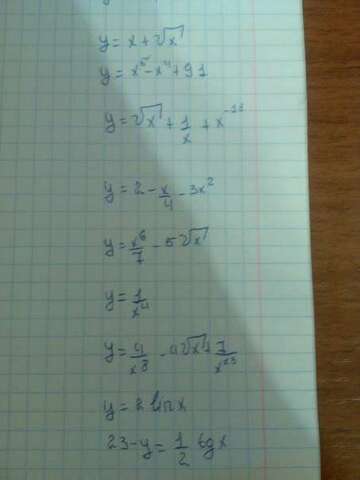 y = x + √x
y = x⁵ - x⁴ + 91
y = √x + 1/x + x⁻¹³
y = 2 - x/4 - 3x²
y = x⁶/7 - 5√x
y = 1/x⁴
y = 4/x⁸ - 4√x + 7/x²³
y = 2 sin x
23 - y = 1/2 tg x